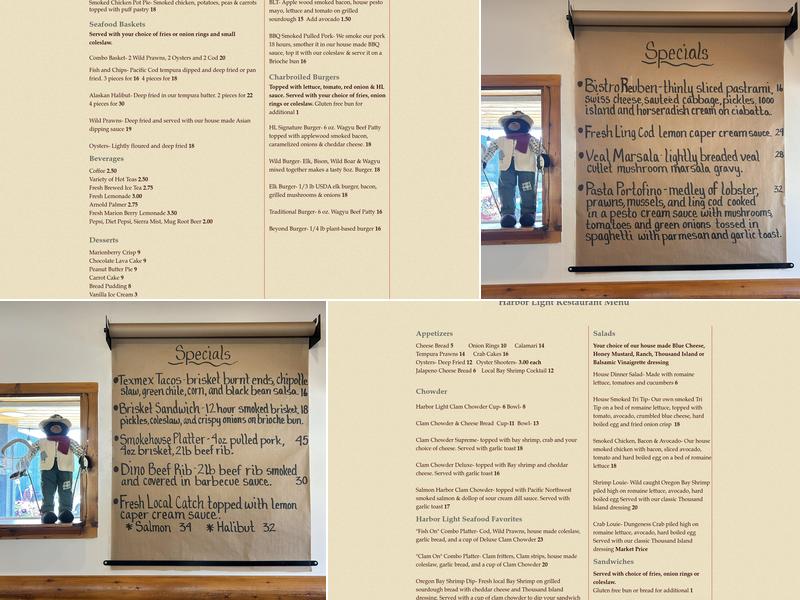 Smoked Chicken Pot Pie- Smoked chicken, potatoes, peas & carrots
topped with puff pastry 18
Seafood Baskets
Served with your choice of fries or onion rings and small
coleslaw.
Combo Basket- 2 Wild Prawns, 2 Oysters and 2 Cod 20
Fish and Chips- Pacific Cod tempura dipped and deep fried or pan
fried. 3 pieces for 16 4 pieces for 18
Alaskan Halibut- Deep fried in our tempura batter. 2 pieces for 22
4 pieces for 30
Wild Prawns- Deep fried and served with our house made Asian
dipping sauce 19
Oysters- Lightly floured and deep fried 18
Beverages
Coffee 2.50
Variety of Hot Teas 2.50
Fresh Brewed Ice Tea 2.75
Fresh Lemonade 3.00
Arnold Palmer 2.75
Fresh Marion Berry Lemonade 3.50
Pepsi, Diet Pepsi, Sierra Mist, Mug Root Beer 2.00
Desserts
Marionberry Crisp 9
Chocolate Lava Cake 9
Peanut Butter Pie 9
Carrot Cake 9
Bread Pudding 8
Vanilla Ice Cream 3
BLT- Apple wood smoked bacon, house pesto
mayo, lettuce and tomato on grilled
sourdough 15 Add avocado 1.50
BBQ Smoked Pulled Pork- We smoke our pork
18 hours, smother it in our house made BBQ
sauce, top it with our coleslaw & serve it on a
Brioche bun 16
Charbroiled Burgers
Topped with lettuce, tomato, red onion & HL
sauce. Served with your choice of fries, onion
rings or coleslaw. Gluten free bun for
additional 1
HL Signature Burger- 6 oz. Wagyu Beef Patty
topped with applewood smoked bacon,
caramelized onions & cheddar cheese. 18
Wild Burger- Elk, Bison, Wild Boar & Wagyu
mixed together makes a tasty 8oz. Burger. 18
Elk Burger- 1/3 lb USDA elk burger, bacon,
grilled mushrooms & onions 18
Traditional Burger- 6 oz. Wagyu Beef Patty 16
Beyond Burger- 1/4 lb plant-based burger 16
Specials
Bistro Reuben-thinly sliced pastrami, 16
swiss cheese, sauteed cabbage, pickles, 1000
island and horseradish cream on ciabatta.
Fresh Ling Cod lemon caper cream sauce. 29
Veal Marsala-lightly breaded veal 28
cutlet mushroom marsala gravy.
Pasta Portofino-medley of lobster, 32
prawns, mussels, and ling cod cooked
in a pesto cream sauce with mushrooms,
tomatoes and green onions tossed in
spaghetti with parmesan and garlic toast.
Specials
Texmex Tacos-brisket burnt ends, chipotle
slaw, green chile, corn, and black bean salsa. 16
Brisket Sandwich-12 hour smoked brisket, 18
pickles, coleslaw, and crispy onions on brioche bun.
Smokehouse Platter-4oz pulled pork, 45
4oz brisket, 2lb beef rib.
Dino Beef Rib-2lb beef rib smoked
and covered in barbecue sauce. 30
Fresh Local Catch topped with lemon
caper cream sauce.
* Salmon 34 * Halibut 32
Harbor Light Restaurant Menu
Appetizers
Cheese Bread 5 Onion Rings 10 Calamari 14
Tempura Prawns 14 Crab Cakes 16
Oysters- Deep Fried 12 Oyster Shooters- 3.00 each
Jalapeno Cheese Bread 6 Local Bay Shrimp Cocktail 12
Chowder
Harbor Light Clam Chowder Cup- 6 Bowl- 8
Clam Chowder & Cheese Bread Cup-11 Bowl- 13
Clam Chowder Supreme- topped with bay shrimp, crab and your
choice of cheese. Served with garlic toast 18
Clam Chowder Deluxe- topped with Bay shrimp and cheddar
cheese. Served with garlic toast 16
Salmon Harbor Clam Chowder- topped with Pacific Northwest
smoked salmon & dollop of sour cream dill sauce. Served with
garlic toast 17
Harbor Light Seafood Favorites
"Fish On" Combo Platter- Cod, Wild Prawns, house made coleslaw,
garlic bread, and a cup of Deluxe Clam Chowder 23
"Clam On" Combo Platter- Clam fritters, Clam strips, house made
coleslaw, garlic bread, and a cup of Clam Chowder 20
Oregon Bay Shrimp Dip- Fresh local Bay Shrimp on grilled
sourdough bread with cheddar cheese and Thousand Island
dressing. Served with a cup of clam chowder to dip your sandwich
Salads
Your choice of our house made Blue Cheese,
Honey Mustard, Ranch, Thousand Island or
Balsamic Vinaigrette dressing
House Dinner Salad- Made with romaine
lettuce, tomatoes and cucumbers 6
House Smoked Tri Tip- Our own smoked Tri
Tip on a bed of romaine lettuce, topped with
tomato, avocado, crumbled blue cheese, hard
boiled egg and fried onion crisp 18
Smoked Chicken, Bacon & Avocado- Our house
smoked chicken with bacon, sliced avocado,
tomato and hard boiled egg on a bed of romaine
lettuce 18
Shrimp Louie- Wild caught Oregon Bay Shrimp
piled high on romaine lettuce, avocado, hard
boiled egg Served our classic Thousand Island
dressing 20
Crab Louie- Dungeness Crab piled high on
romaine lettuce, avocado, hard boiled egg
Served with our classic Thousand Island
dressing Market Price
Sandwiches
Served with choice of fries, onion rings or
coleslaw.
Gluten free bun or bread for additional 1